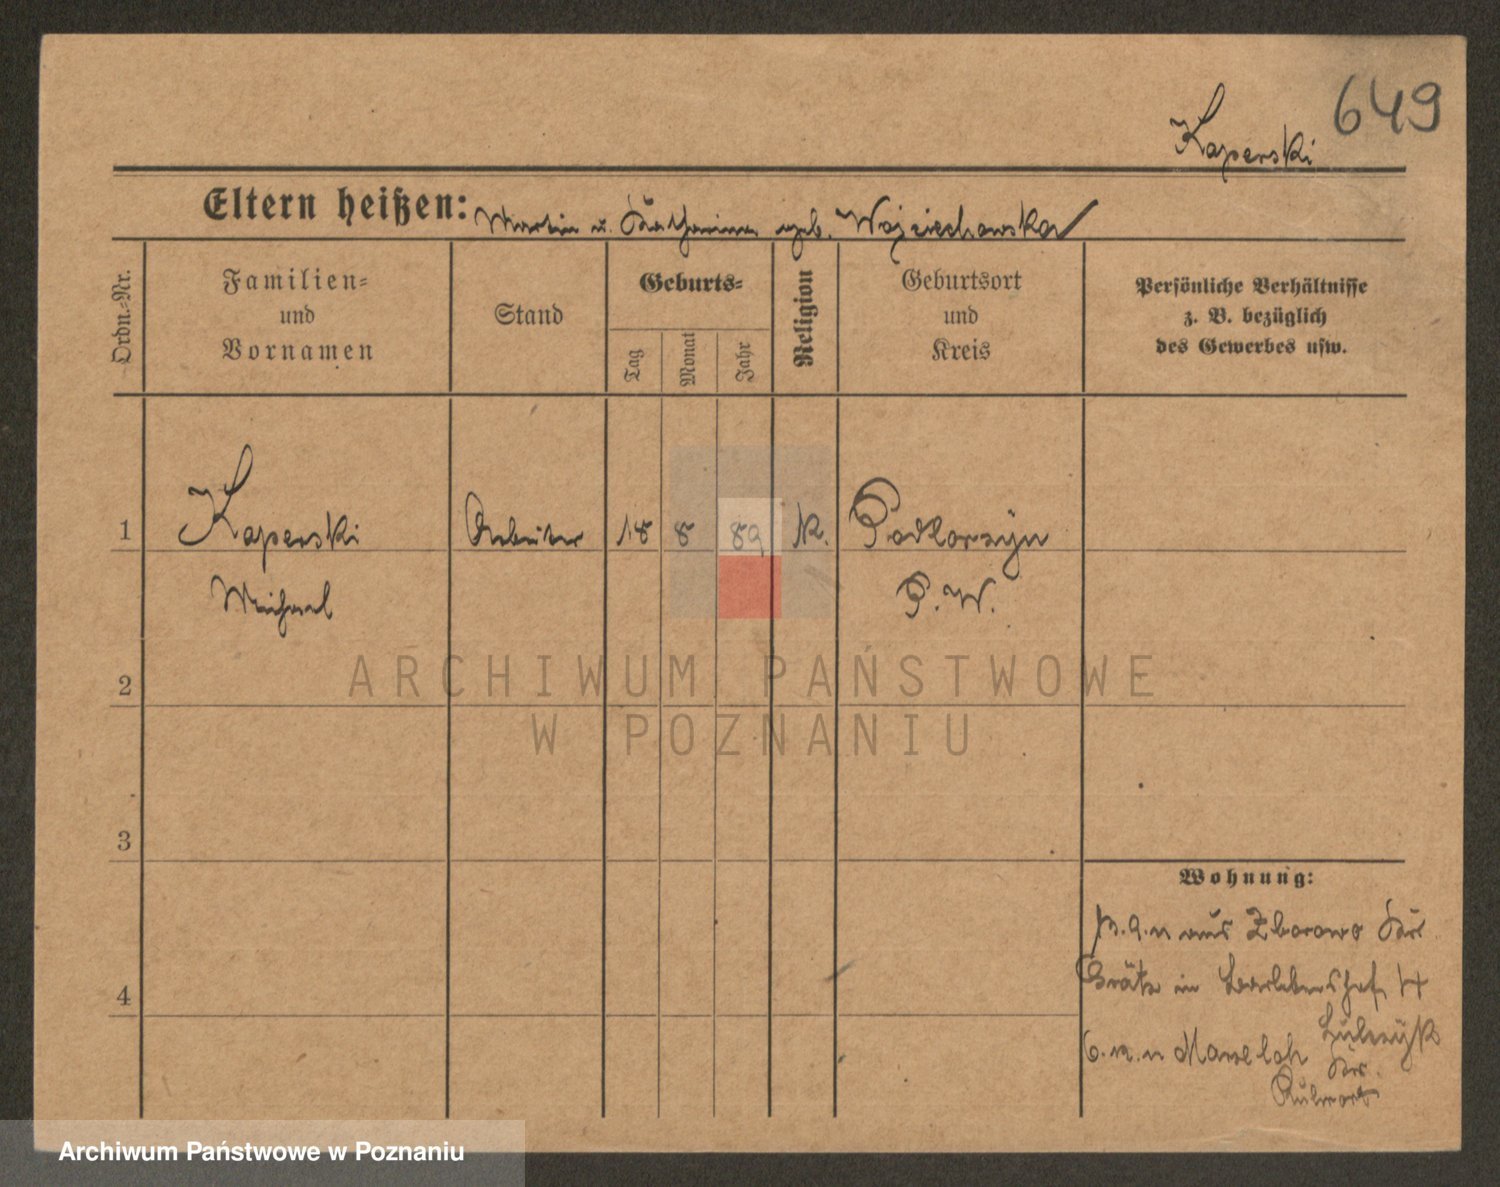 649
Kaperski
Eltern heißen: Martin u. Katharina geb. Wojciechowska
Ordn.-Nr.
Familien-
und
Vornamen
Stand
Geburts-
Tag
Monat
Jahr
Religion
Geburtsort
und
Kreis
Persönliche Verhältnisse
z. B. bezüglich
des Gewerbes usw.
1 Kaperski Arbeiter 18 8 89 K. Podkorzyn
Michael P. W.
2
3
4
Wohnung:
aus Zborowo Krs
Grätz in 4
6. n. n
Krs.
Ruhrort
ARCHIWUM PAŃSTWOWE
W POZNANIU
Archiwum Państwowe w Poznaniu